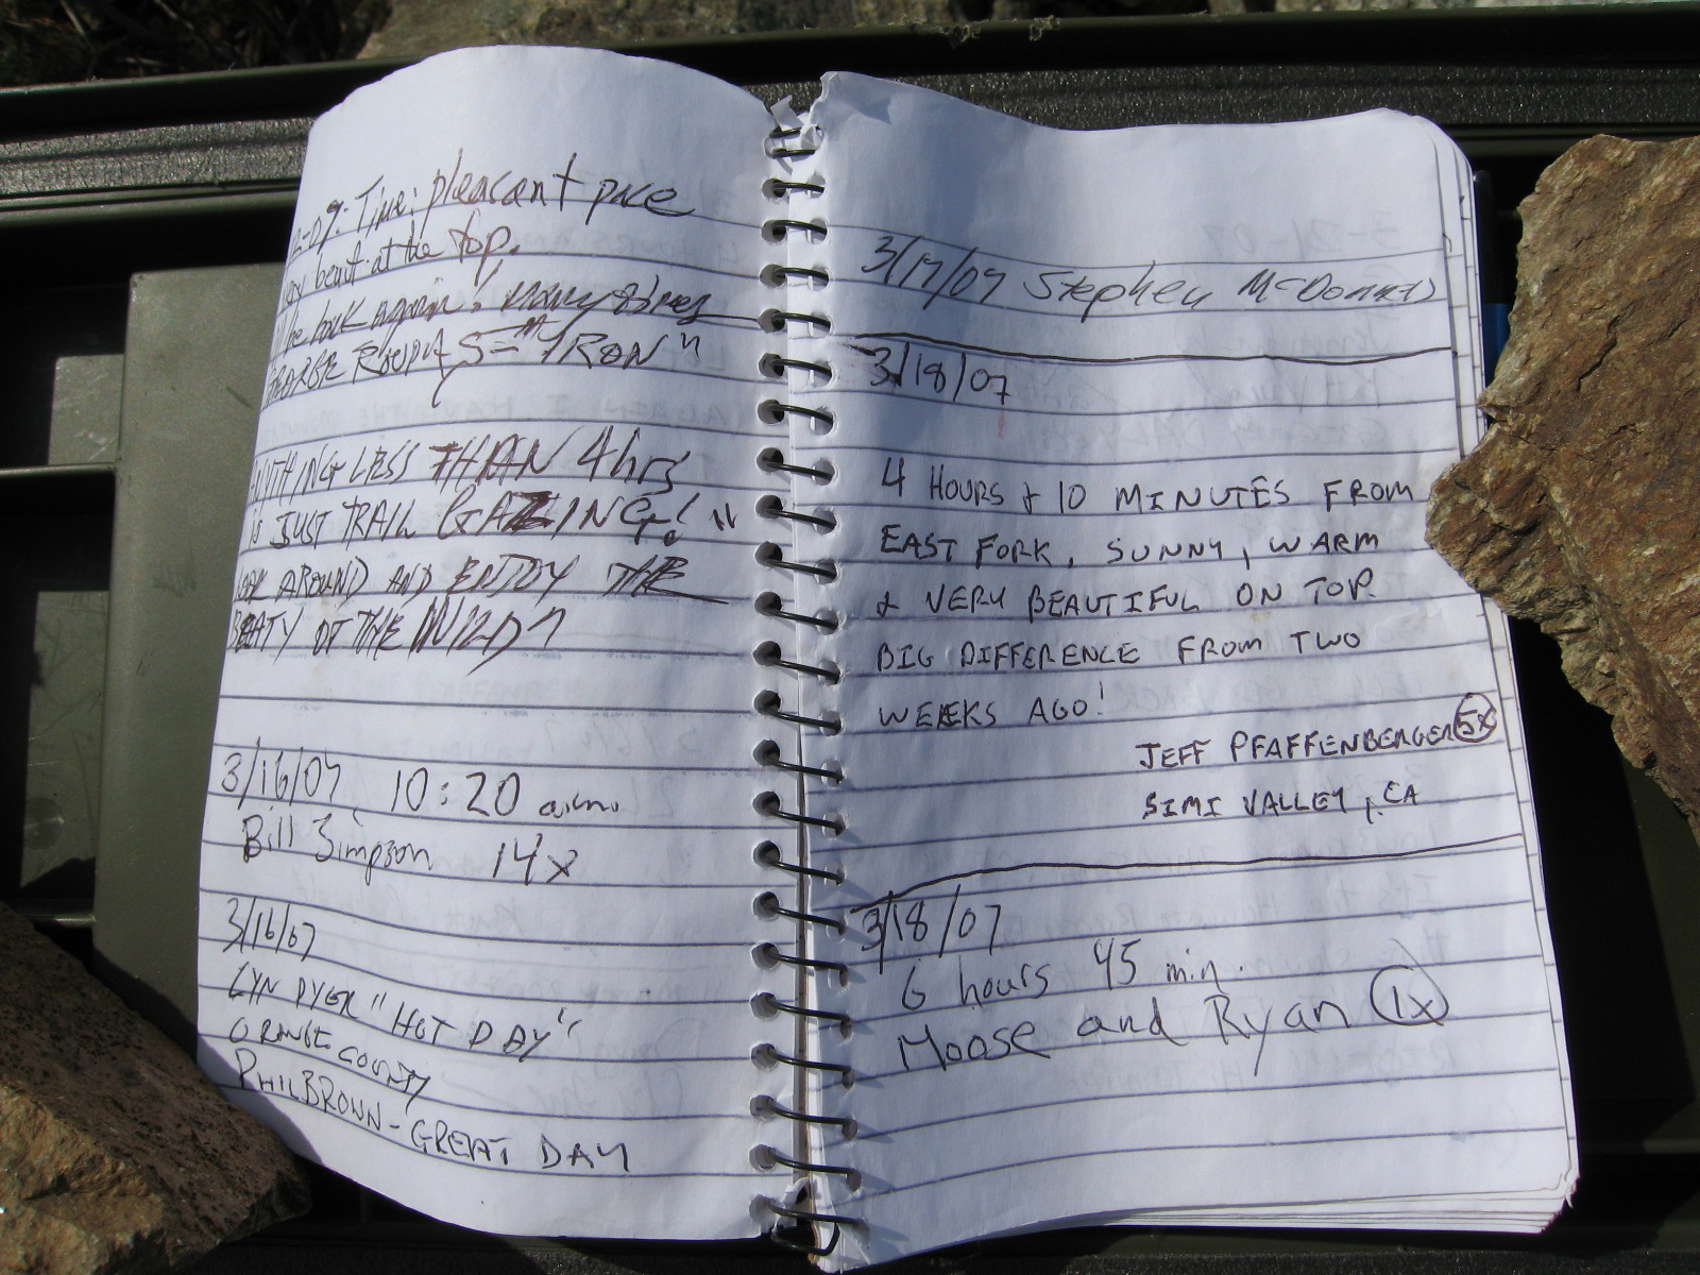 Time: pleasent pace
beaut at the top.
be back again! many times
"IRON"
ANYTHING LESS THAN 4hrs
IS JUST TRAIL GAZING! "
AROUND AND ENJOY THE
OF THE WILD"
3/16/07, 10:20 a.m.
Bill Simpson 14x
3/16/07
LYN DYER "HOT DAY"
ORANGE COUNTY
PHIL BROWN - GREAT DAY
3/17/07 Stephen
3/18/07
4 HOURS & 10 MINUTES FROM
EAST FORK, SUNNY, WARM
& VERY BEAUTIFUL ON TOP.
BIG DIFFERENCE FROM TWO
WEEKS AGO!
JEFF PFAFFENBERGER 5x
SIMI VALLEY, CA
3/18/07
6 hours 45 min.
Moose and Ryan 1x